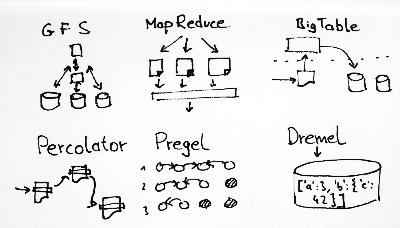 GFS
MapReduce
BigTable
Percolator
Pregel
1
2
3
Dremel
['a':3, 'b':{'c':
42}]